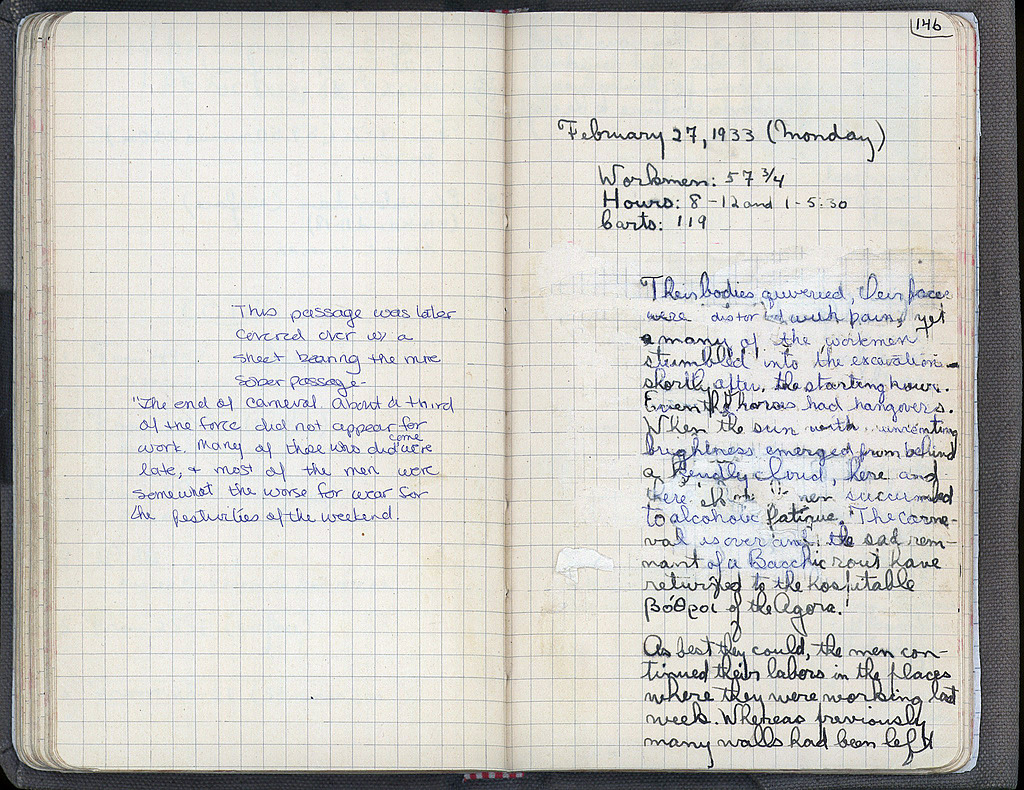 This passage was later
covered over w/ a
sheet bearing the more
sober passage-
"The end of carneval. About a third
of the force did not appear for
work. Many of those who did come were
late, & most of the men were
somewhat the worse for wear for
the festivities of the weekend.
146
February 27, 1933 (Monday)
Workmen: 57 3/4
Hours: 8-12 and 1-5:30
Carts: 119
Their bodies quivered, their faces
were distorted with pain, yet
many of the workmen
stumbled into the excavations
shortly after the starting hour.
Even the horses had hangovers.
When the sun with unrelenting
brightness emerged from behind
a kindly cloud, here and
there men succumbed
to alcoholic fatigue. The carne-
val is over and the sad rem-
nant of a Bacchic rout have
returned to the hospitable
βόθροι of the Agora.
As best they could, the men con-
tinued their labors in the places
where they were working last
week. Whereas previously
many walls had been left